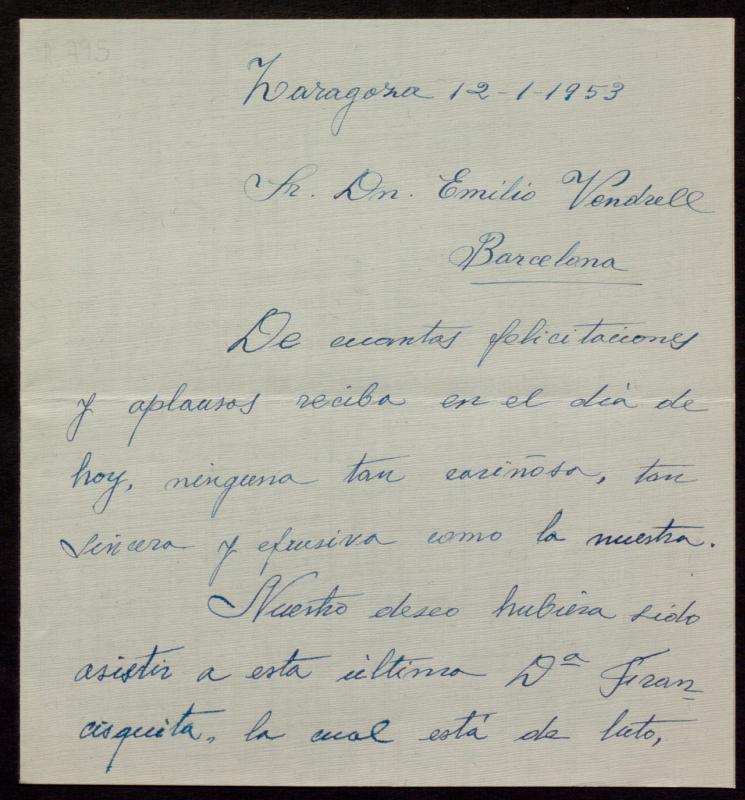 P. 795
Zaragoza 12-1-1953
Sr. Dn. Emilio Vendrell
Barcelona
De cuantas felicitaciones
y aplausos reciba en el día de
hoy, ninguna tan cariñosa, tan
sincera y efusiva como la nuestra.
Nuestro deseo hubiera sido
asistir a esta última Dª Fran-
cisquita, la cual está de luto,